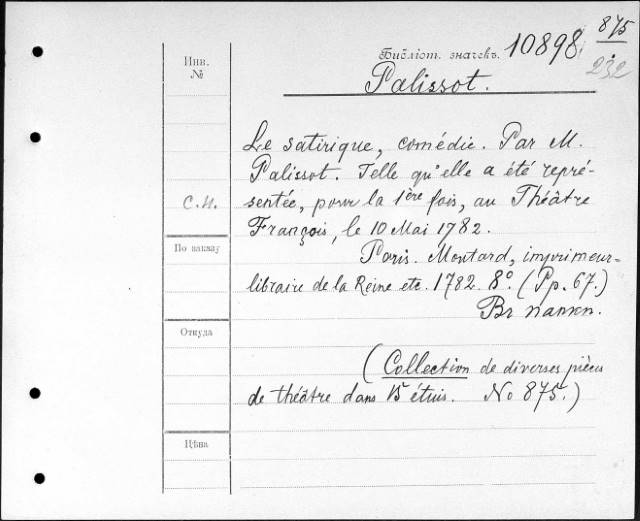 875
Инв. №
Библіот. значекъ. 10898
232
Palissot.
Le satirique, comédie. Par M.
Palissot. Telle qu'elle a été repré-
С.Н. sentée, pour la 1ère fois, au Théâtre
François, le 10 Mai 1782.
По заказу
Paris. Moutard, imprimeur-
libraire de la Reine etc. 1782. 8º. (Pp. 67.)
Въ папкѣ.
Откуда
(Collection de diverses pièces
de théâtre dans 15 étuis. No 875.)
Цѣна